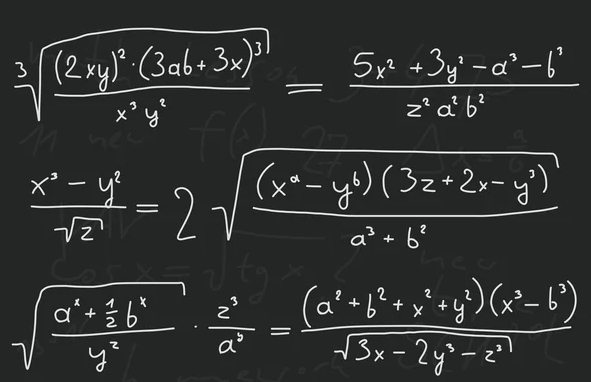 ∛((2xy)²·(3ab+3x)³ / x³y²) = (5x²+3y²−a³−b³) / (z²a²b²)
(x³−y²) / √z = 2√((xᵃ−yᵇ)(3z+2x−y³) / (a³+b²))
√((aˣ+½bˣ) / y²) · z³/a⁵ = (a²+b²+x²+y²)(x³−b³) / √(3x−2y³−z³)